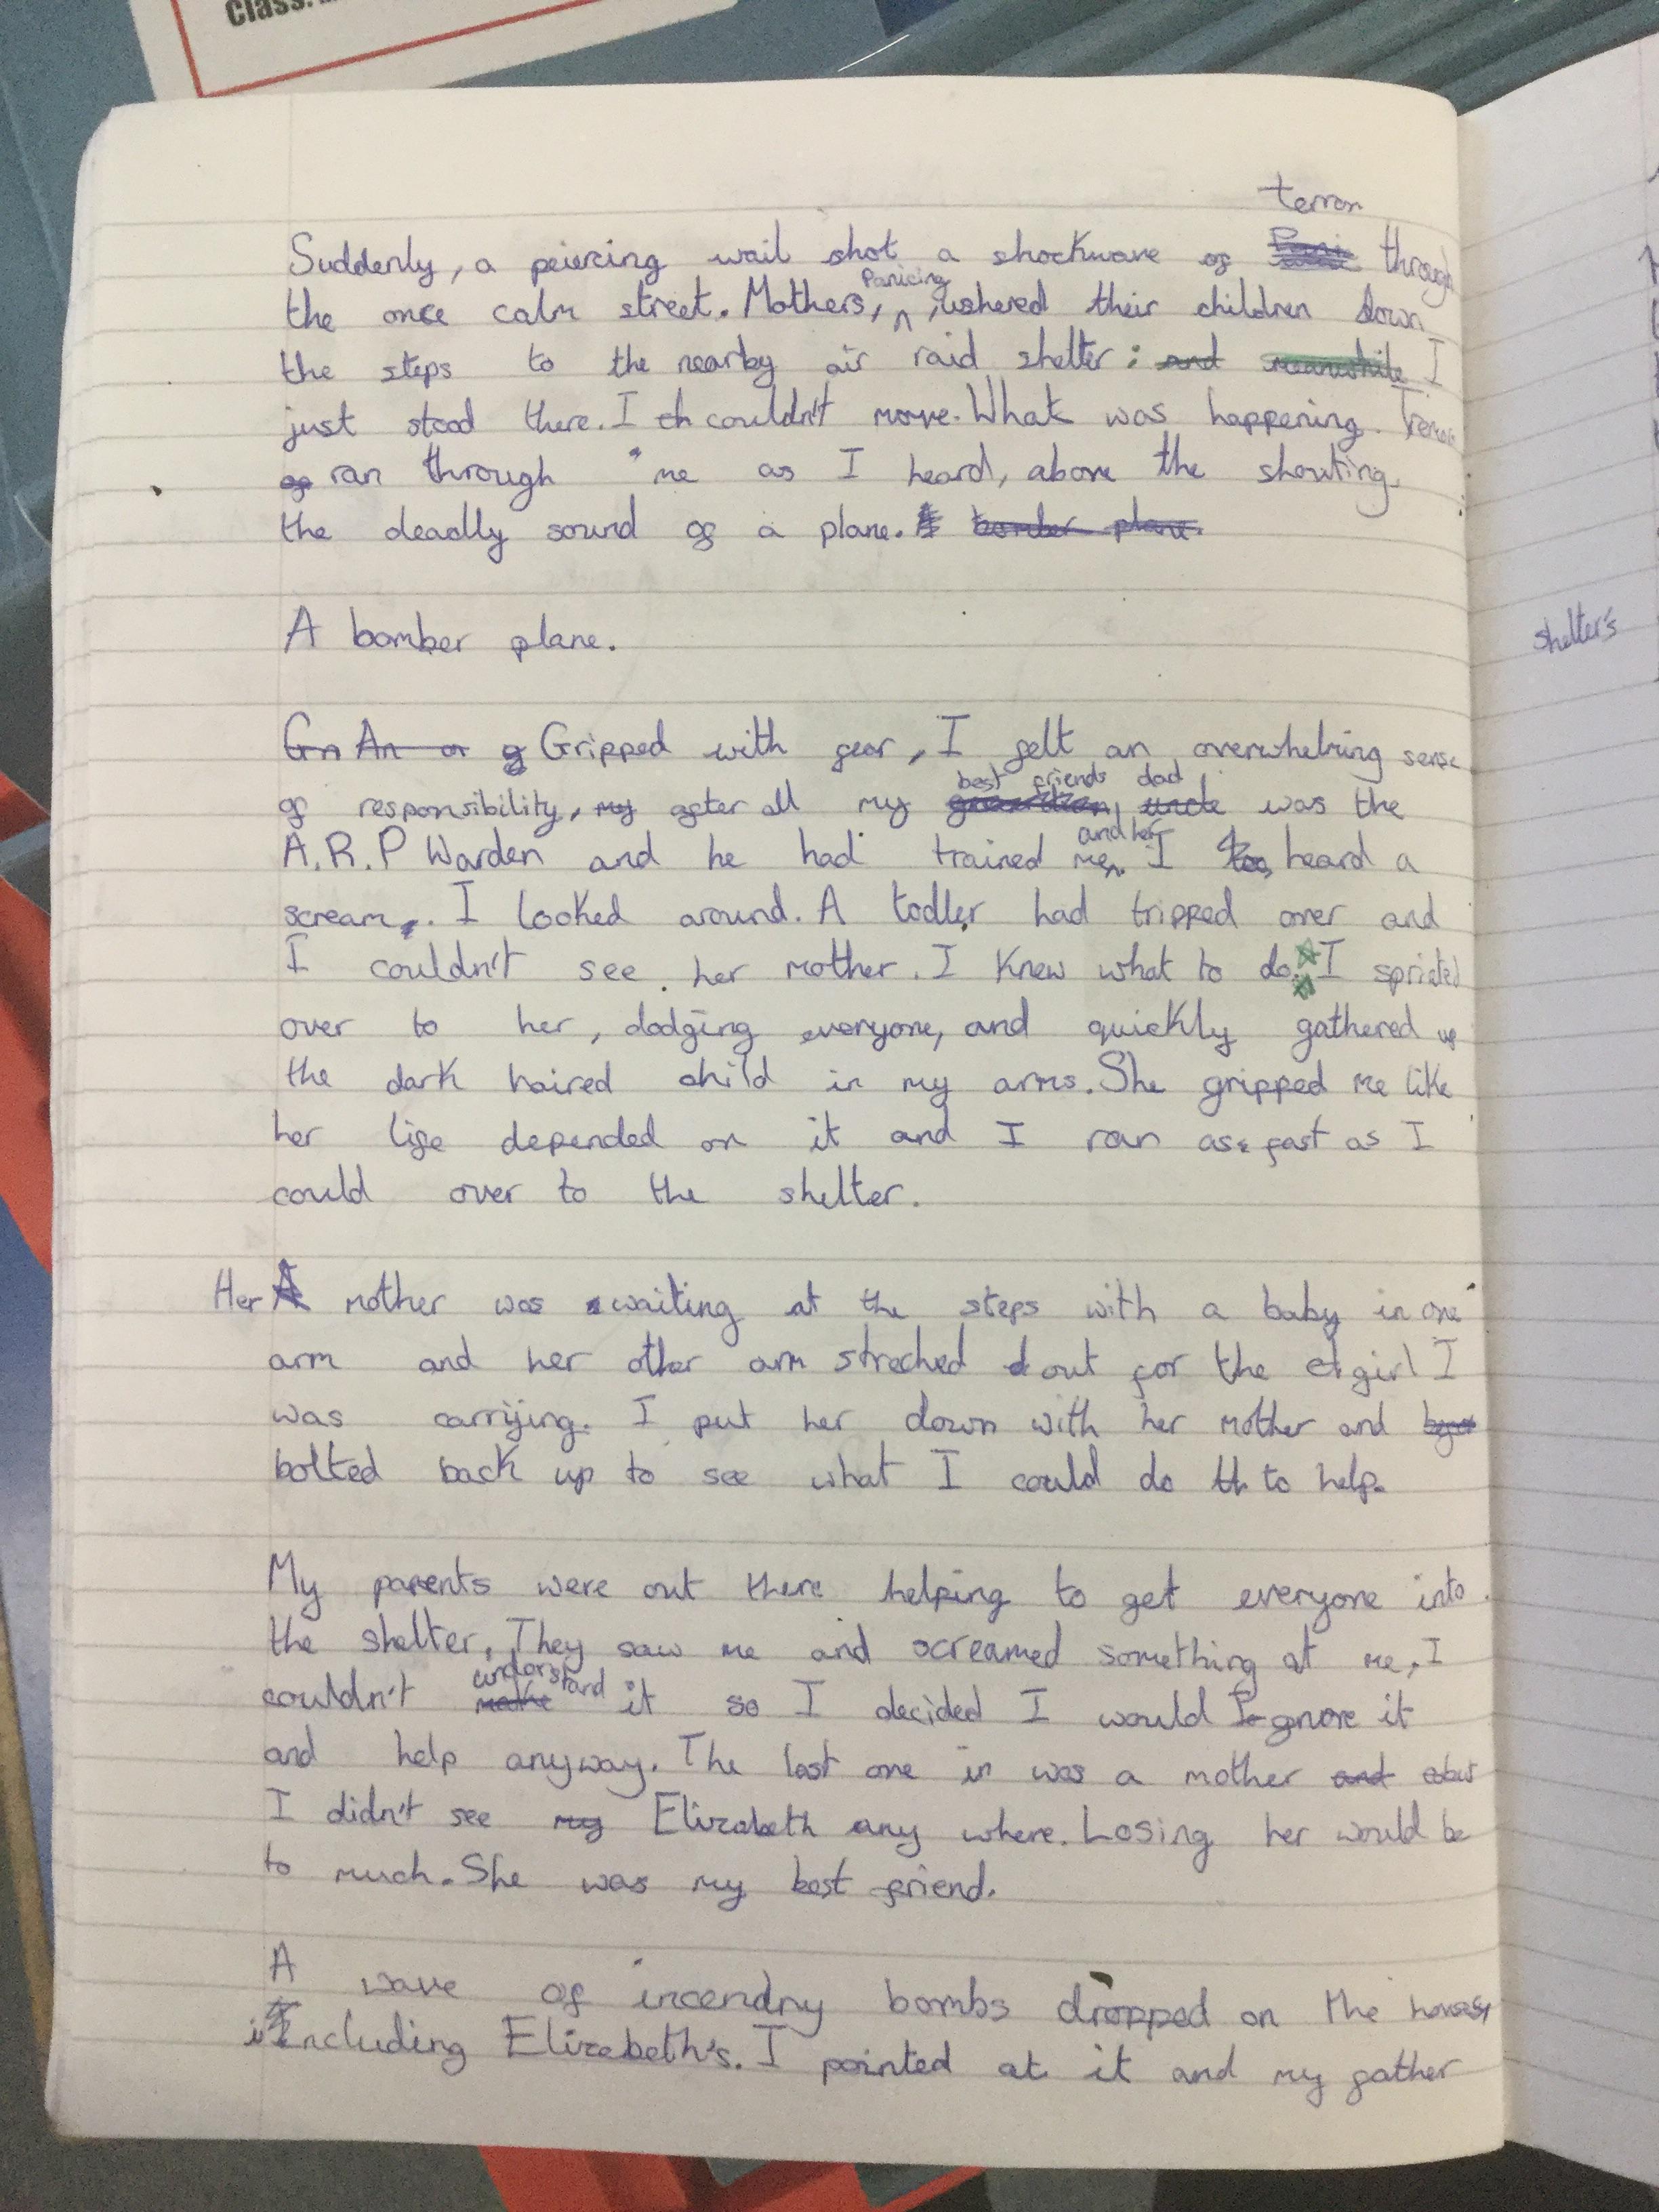 class.
terror
Suddenly, a peircing wail shot a shockwave of through
Panicing
the once calm street. Mothers, ,ushered their children down
the steps to the nearby air raid shelter; and meanwhile I
just stood there. I couldn't move. What was happening. Terror
ran through me as I heard, above the shouting,
the deadly sound of a plane. bomber plane.
A bomber plane.
Gn An or g Gripped with fear, I felt an overwhelming sense
best friends dad
of responsibility, my after all my uncle was the
and her
A.R.P Warden and he had trained me. I heard a
scream. I looked around. A todler had tripped over and
I couldn't see her mother. I knew what to do. I sprinted
over to her, dodging everyone, and quickly gathered up
the dark haired child in my arms. She gripped me like
her life depended on it and I ran as fast as I
could over to the shelter.
Her A mother was waiting at the steps with a baby in one
arm and her other arm streched out for the girl I
was carrying. I put her down with her mother and
bolted back up to see what I could do th to help.
My parents were out there helping to get everyone into
the shelter. They saw me and screamed something at me, I
understand
couldn't make it so I decided I would Ignore it
and help anyway. The last one in was a mother and
I didn't see my Elizabeth any where. Losing her would be
to much. She was my best friend.
A wave of incendry bombs dropped on the houses,
including Elizabeth's. I pointed at it and my father
shelter's